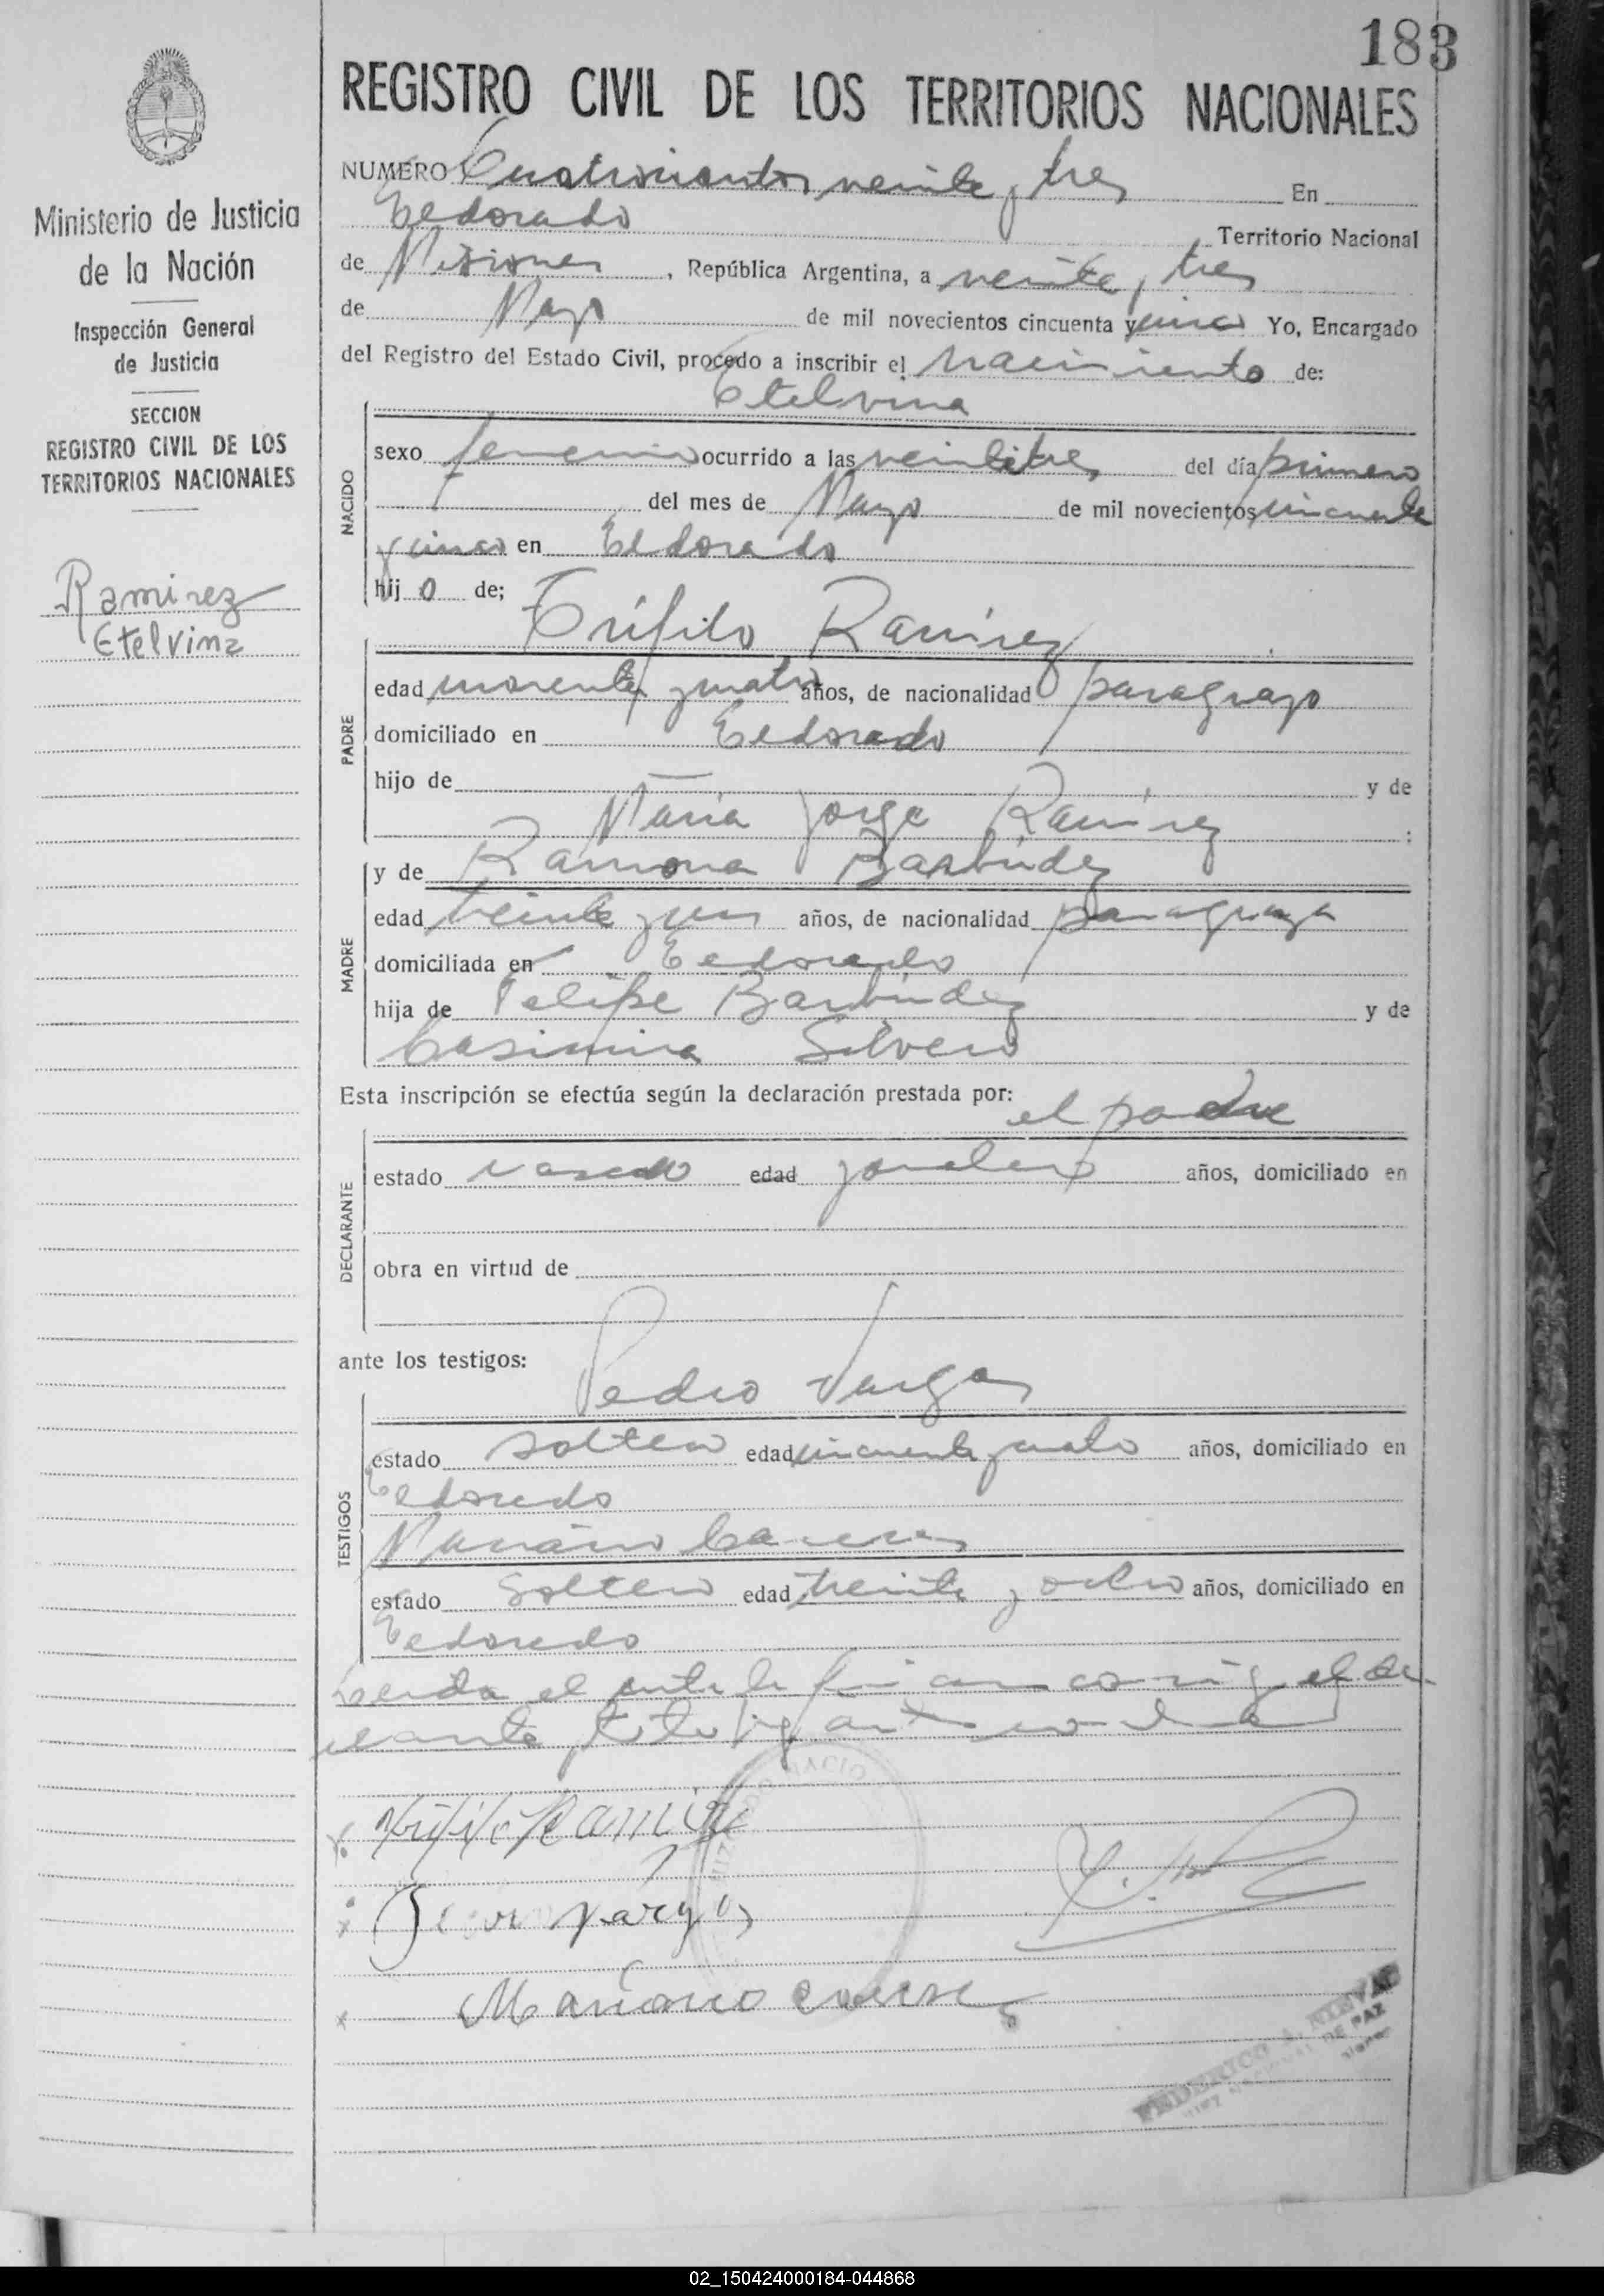 183
REGISTRO CIVIL DE LOS TERRITORIOS NACIONALES
Ministerio de Justicia
de la Nación
Inspección General
de Justicia
SECCION
REGISTRO CIVIL DE LOS
TERRITORIOS NACIONALES
Ramirez
Etelvina
NUMERO Cuatrocientos veinte y tres En
Eldorado Territorio Nacional
de Misiones, República Argentina, a veinte y tres
de Mayo de mil novecientos cincuenta y cinco Yo, Encargado
del Registro del Estado Civil, procedo a inscribir el nacimiento de:
Etelvina
NACIDO
sexo femenino ocurrido a las veintitres del día primero
del mes de Mayo de mil novecientos cincuenta
y cinco en Eldorado
hij o de;
Trifilo Ramirez
PADRE
edad cuarenta y cuatro años, de nacionalidad paraguayo
domiciliado en Eldorado
hijo de y de
Maria Jorge Ramirez :
y de Ramona Barbudez
MADRE
edad veinte y un años, de nacionalidad paraguaya
domiciliada en Eldorado
hija de Felipe Barbudez y de
Casimira Silvero
Esta inscripción se efectúa según la declaración prestada por:
el padre
DECLARANTE
estado casado edad jornalero años, domiciliado en
obra en virtud de
ante los testigos:
Pedro Vargas
TESTIGOS
estado soltero edad cincuenta y cuatro años, domiciliado en
Eldorado
Mariano Caceres
estado Soltero edad treinta y ocho años, domiciliado en
Eldorado
Leida el acta la firman conmigo el de-
clarante y testigos
Trifilo Ramirez
Vargas
Mariano Caceres
FEDERICO A.
DE PAZ
02_150424000184-044868